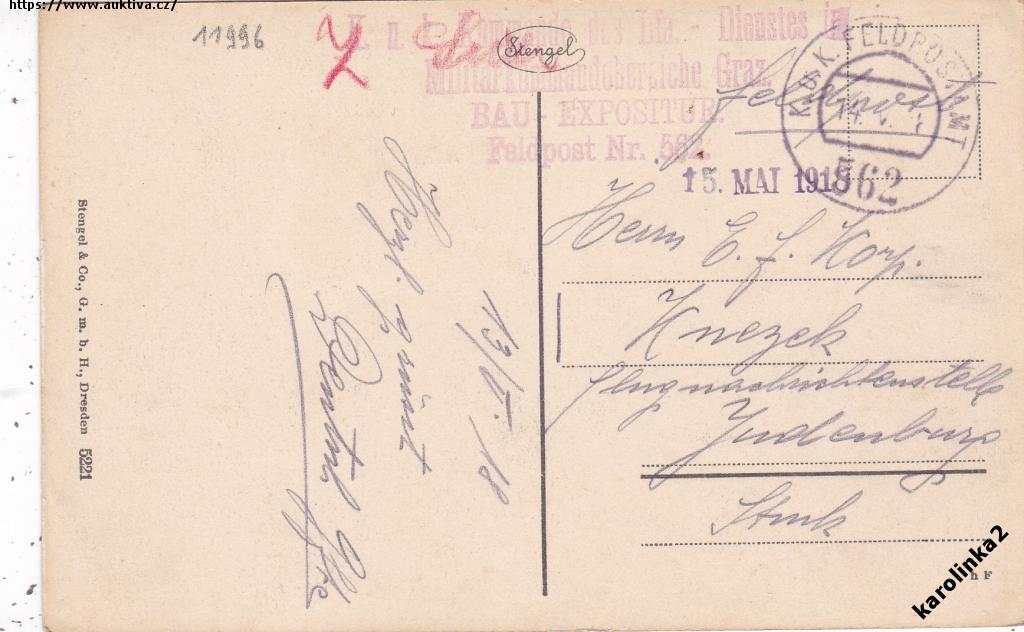 https://www.auktiva.cz/
11996
Stengel
K. u. k. Kommando des Lfa.- Dienstes im
Militärkommandobereiche Graz.
BAU - EXPOSITUR.
Feldpost Nr. 562.
K. u. K. FELDPOSTAMT
562
Feldpost
15. MAI 1918
Herrn E. f. Korp.
Knezek
Flugnachrichtenstelle
Judenburg
Stmk
13/V. 18
Herzl. grüsst
Stengel & Co., G. m. b. H., Dresden 5221
h F
karolinka2